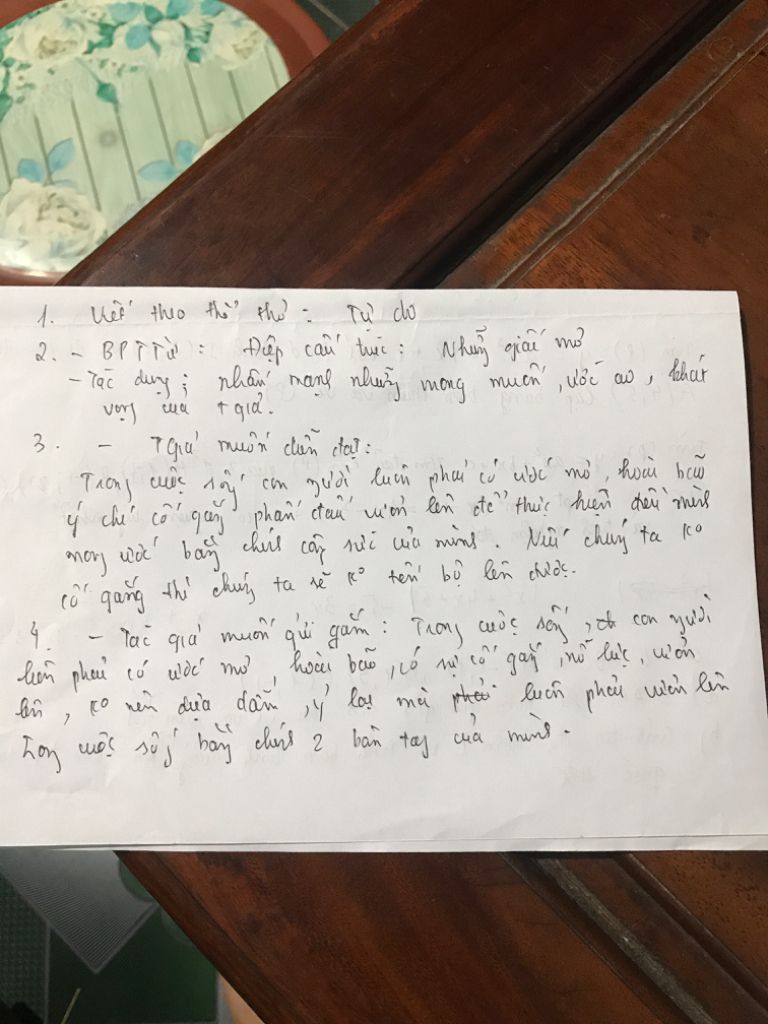 1. Viết theo thể thơ: Tự do
2. - BPTTừ: Điệp cấu trúc: Những giấc mơ
- Tác dụng: nhấn mạnh những mong muốn, ước ao, khát
vọng của tgiả.
3. - TGiả muốn diễn đạt:
Trong cuộc sống con người luôn phải có ước mơ, hoài bão
ý chí cố gắng phấn đấu vươn lên để thực hiện điều mình
mong ước bằng chính công sức của mình. Nếu chúng ta ko
cố gắng thì chúng ta sẽ ko tiến bộ lên được.
4. - Tác giả muốn gửi gắm: Trong cuộc sống, con người
luôn phải có ước mơ, hoài bão, có sự cố gắng, nỗ lực, vươn
lên, ko nên dựa dẫm, ỷ lại mà luôn phải vươn lên
trong cuộc sống bằng chính 2 bàn tay của mình.